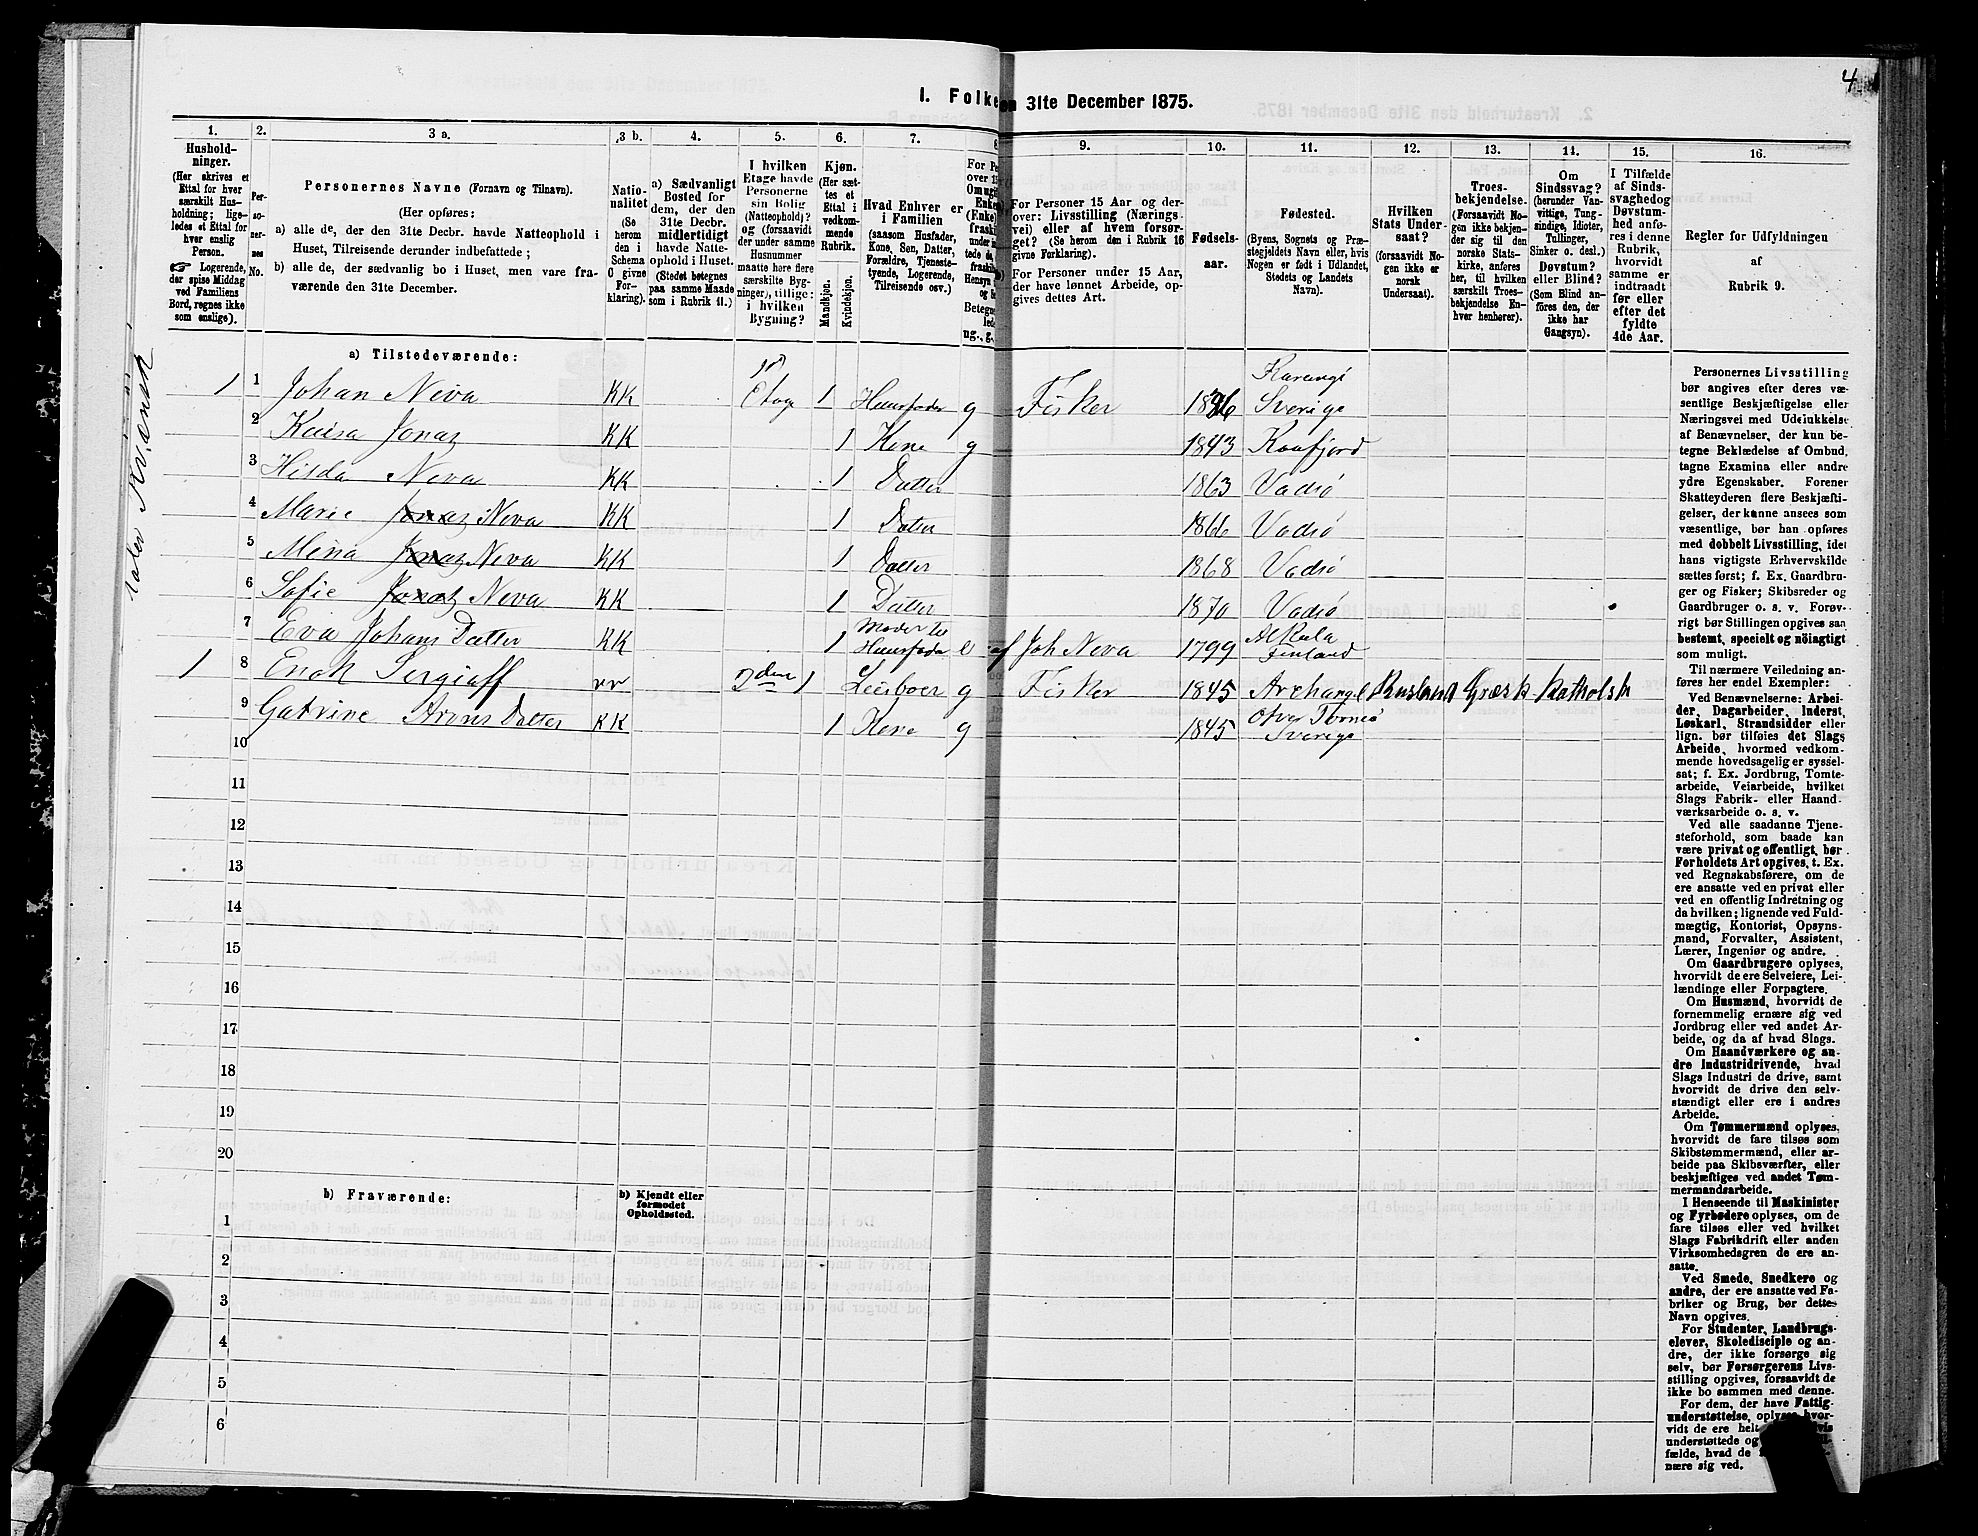 4
I. Folke
en 31te December 1875.
1.
2.
3 a.
3 b.
4.
5.
6.
7.
8
9.
10.
11.
12.
13.
14.
15.
16.
Hushold-
ninger.
(Her skrives et
Ettal for hver
særskilt Hus-
holdning; lige-
ledes et Ettal for
hver enslig
Person.
☞ Logerende,
der spise Middag
ved Familiens
Bord, regnes ikke
som enslige).
Per-
so-
ner-
nes
No.
Personernes Navne (Fornavn og Tilnavn).
(Her opføres:
a) alle de, der den 31te Decbr. havde Natteophold i
Huset, Tilreisende derunder indbefattede;
b) alle de, der sædvanlig bo i Huset, men vare fra-
værende den 31te December.
Natio-
nalitet
(Se
herom
den i
Schema
O givne
For-
klaring).
a) Sædvanligt
Bosted for
dem, der den
31te Decbr.
midlertidigt
havde Natte-
ophold i Huset.
(Stedet betegnes
paa samme Maade
som i Rubrik 11.)
I hvilken
Etage havde
Personerne
sin Bolig
(Natteophold)?
og (forsaavidt
der under samme
Husnummer
maatte høre flere
særskilte Byg-
ninger), tillige:
i hvilken
Bygning?
Kjøn.
(Her sæt-
tes et
Ettal i
vedkom-
mende
Rubrik.
Mandkjøn.
Kvindekjøn.
Hvad Enhver er
i Familien
(saasom Husfader,
Kone, Søn, Datter,
Forældre, Tjeneste-
tyende, Logerende,
Tilreisende osv.)
For Personer 15 Aar og der-
over: Livsstilling (Nærings-
vei) eller af hvem forsør-
get? (Se herom den i Rubrik 16
givne Forklaring).
For Personer under 15 Aar,
der have lønnet Arbeide, op-
gives dettes Art.
Fødsels-
aar.
Fødested.
(Byens, Sognets og Præ-
stegjeldets Navn eller, hvis
Nogen er født i Udlandet,
Stedets og Landets
Navn).
Hvilken
Stats Under-
saat?
(forsaavidt No-
gen ikke er
norsk
Undersaat).
Troes-
bekjendelse.
(Forsaavidt No-
gen ikke bekjen-
der sig til den
norske Stats-
kirke, anføres
her, til hvilken
særskilt Troes-
bekjendelse En-
hver henhører).
Om
Sindssvag?
(herunder Van-
vittige, Tung-
sindige, Idioter,
Tullinger,
Sinker o. desl.)
Døvstum?
eller Blind?
(Som Blind an-
føres den, der
ikke har
Gangsyn).
I Tilfælde
af Sinds-
svaghed og
Døvstum-
hed anfø-
res i denne
Rubrik,
hvorvidt
samme er
indtraadt
før eller
efter det
fyldte
4de Aar.
Regler for Udfyldningen
af
Rubrik 9.
a) Tilstedeværende:
1 1 Johan Neva KK Etage 1 Huusfader g Fisker Sverige
2 Kaisa Jonaz KK 1 Kone g 1843 Kaafjord
3 Hilda Neva KK 1 Datter 1863 Vadsø
4 Marie Jonaz Neva KK 1 Datter 1866 Vadsø
5 Mina Jonaz Neva KK 1 Datter 1868 Vadsø
6 Sofie Jonaz Neva KK 1 Datter 1870 Vadsø
7 Eva Johans Datter KK 1 Moder til Huusfader e af Joh Neva 1799 Alkula Finland
1 8 Enok Sergiaff rr 2den 1 Leieboer g Fisker 1845 Archangel Rusland Græsk Katholsk
9 Gatrine Arons Datter KK 1 Kone g 1845 Over Torneø Sverige
10
11
12
13
14
15
16
17
18
19
20
b) Fraværende:
b) Kjendt eller
formodet
Opholdssted.
1
2
3
4
5
6
taler Kvænsk
Personernes Livsstilling
bør angives efter deres væ-
sentlige Beskjæftigelse eller
Næringsvei med Udelukkelse
af Benævnelser, der kun be-
tegne Beklædelse af Ombud,
tagne Examina eller andre
ydre Egenskaber. Forener
Skatteyderen flere Beskjæfti-
gelser, der kunne ansees som
væsentlige, bør han opføres
med dobbelt Livsstilling, idet
hans vigtigste Erhvervskilde
sættes først; f. Ex. Gaardbru-
ger og Fisker; Skibsreder og
Gaardbruger o. s. v. Forøv-
rigt bør Stillingen opgives saa
bestemt, specielt og nöiagtigt
som muligt.
Til nærmere Veiledning an-
føres her endel Exempler:
Ved Benævnelserne: Arbei-
der, Dagarbeider, Inderst,
Løskarl, Strandsidder eller
lign. bør tilføies det Slags
Arbeide, hvormed vedkom-
mende hovedsagelig er syssel-
sat; f. Ex. Jordbrug, Tomte-
arbeide, Veiarbeide, hvilket
Slags Fabrik- eller Haand-
værksarbeide o. s. v.
Ved alle saadanne Tjene-
steforhold, som baade kan
være privat og offentligt, bør
Forholdets Art opgives, t. Ex.
ved Regnskabsførere, om de
ere ansatte ved en privat eller
ved en offentlig Indretning og
da hvilken; lignende ved Fuld-
mægtig, Kontorist, Opsyns-
mand, Forvalter, Assistent,
Lærer, Ingeniør og andre.
Om Gaardbrugere oplyses,
hvorvidt de ere Selveiere, Lei-
lændinge eller Forpagtere.
Om Husmænd, hvorvidt de
fornemmelig ernære sig ved
Jordbrug eller ved andet Ar-
beide, og da af hvad Slags.
Om Haandværkere og an-
dre Industridrivende, hvad
Slags Industri de drive, samt
hvorvidt de drive den selv-
stændigt eller ere i andres
Arbeide.
Om Tømmermænd oplyses,
hvorvidt de fare tilsøs som
Skibstømmermænd, eller ar-
beide paa Skibsværfter, eller
beskjæftiges ved andet Tøm-
mermandsarbeide.
I Henseende til Maskinister
og Fyrbødere oplyses, om de
fare tilsøs eller ved hvilket
Slags Fabrikdrift eller anden
Virksomhedsgren de ere an-
satte.
Ved Smede, Snedkere og
andre, der ere ansatte ved Fa-
briker og Brug, bør dettes
Navn opgives.
For Studenter, Landbrugs-
elever, Skoledisciple og an-
dre, der ikke forsørge sig
selv, bør Forsørgerens Livs-
stilling opgives, forsaavidt de
ikke bo sammen med denne.
For dem, der have Fattig-
understøttelse, oplyses, hvor-
vidt de ere helt
understøttede og
fælde, hvad de
nære sig ved.